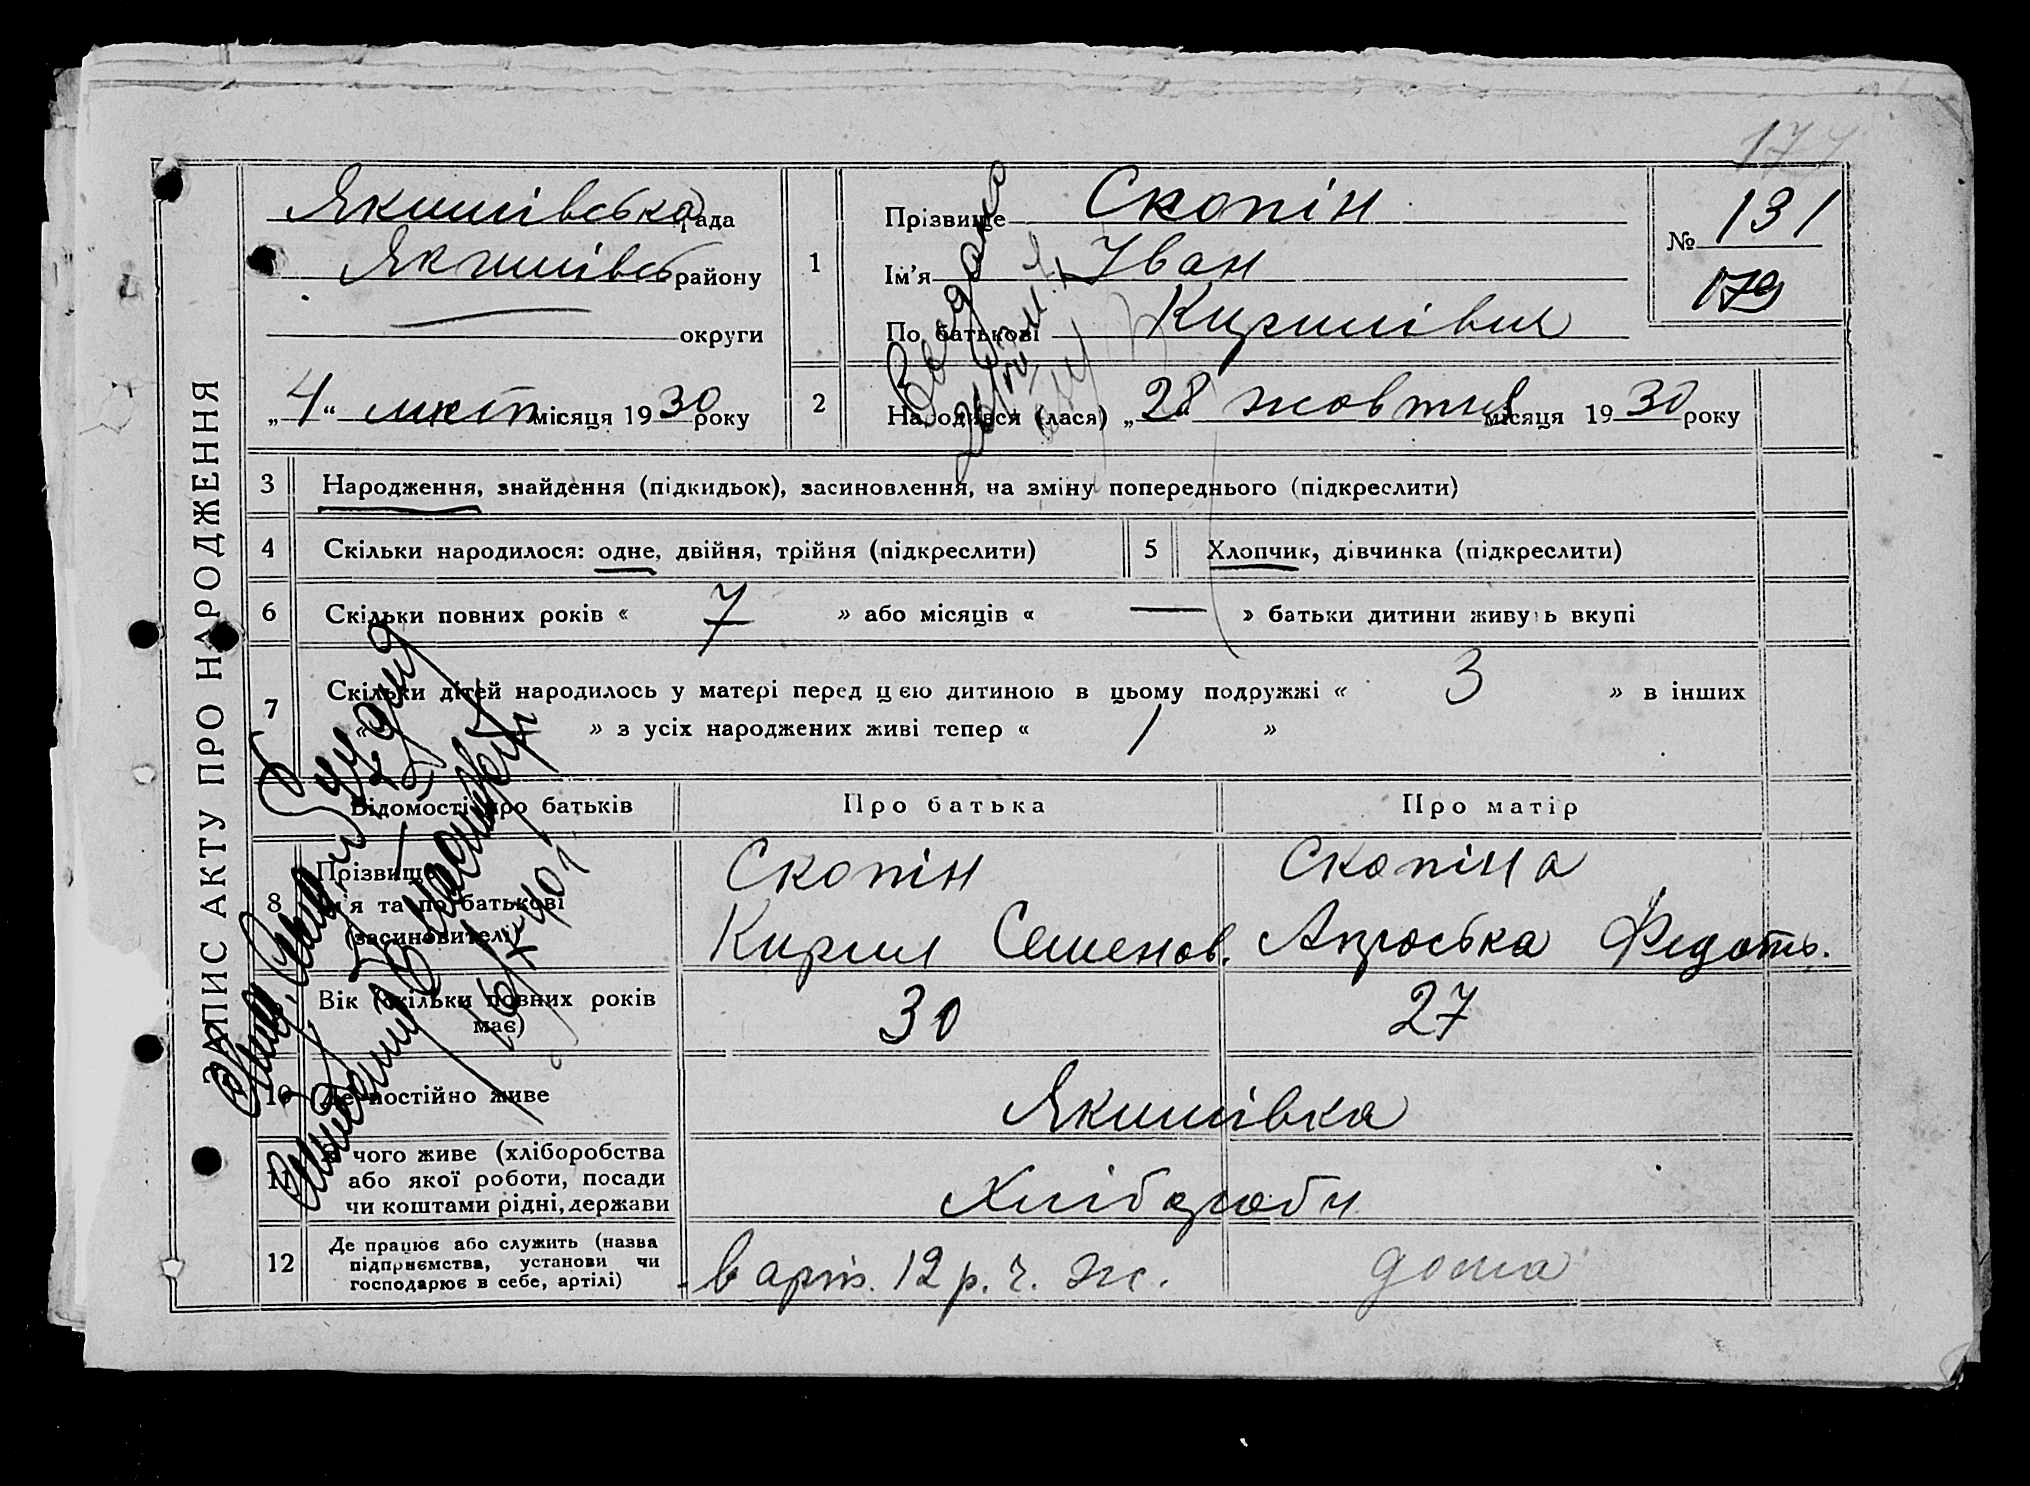 ЗАПИС АКТУ ПРО НАРОДЖЕННЯ
Якимівська рада
Якимівсь району
округи
„4“ лист місяця 1930 року
1
Прізвище Скопін
Ім'я Іван
По батькові Кирилівич
№ 131
179
2
Народився (лася) „28 жовтня місяця 1930 року
3 Народження, знайдення (підкидьок), засиновлення, на зміну попереднього (підкреслити)
4 Скільки народилося: одне, двійня, трійня (підкреслити)
5 Хлопчик, дівчинка (підкреслити)
6 Скільки повних років « 7 » або місяців « — » батьки дитини живуть вкупі
7 Скільки дітей народилось у матері перед цією дитиною в цьому подружжі « 3 » в інших
« — » з усіх народжених живі тепер « 1 »
Відомості про батьків Про батька Про матір
8 Прізвище
ім'я та по батькові
(засиновителі)
Скопін
Кирил Семенов.
Скопіна
Апроська Федотъ.
Вік (скільки повних років має) 30 27
10 Де постійно живе Якимівка
11 З чого живе (хліборобства
або якої роботи, посади
чи коштами рідні, держави
Хлібороби
12 Де працює або служить (назва
підприємства, установи чи
господарює в себе, артілі)
в арт. 12 р. ч. ж.
дома